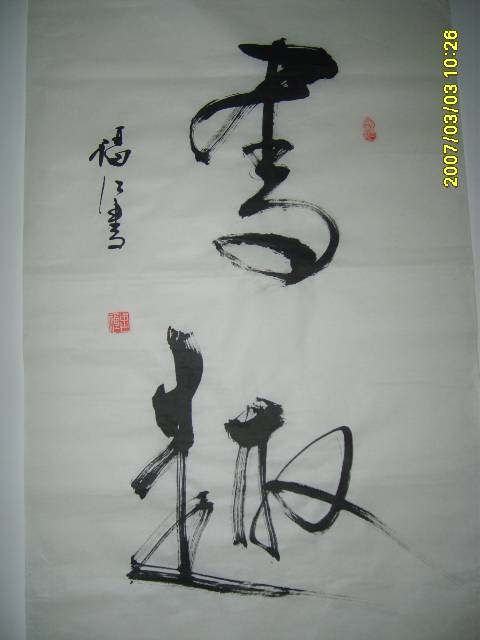 書趣
福江書
2007/03/03 10:26